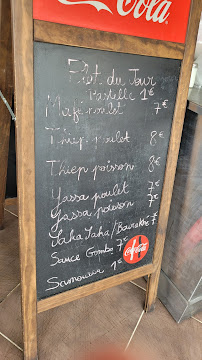 Coca-Cola
Plat du Jour
Pastelle 1€
Mafé poulet 7€
Thiep poulet 8€
Thiep poisson 8€
Yassa poulet 7€
Yassa poisson 7€
Saka Saka/Bounakhé 7€
Sauce Gombo 7€
Samoussa 1€
Coca-Cola